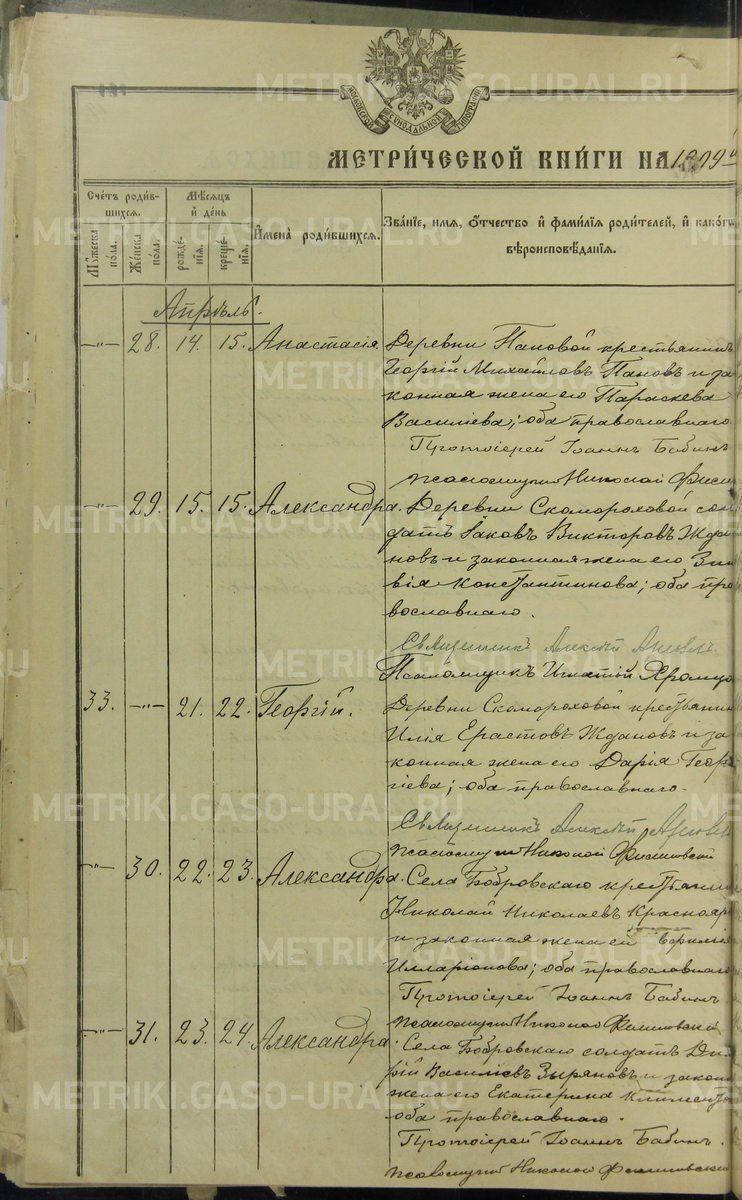 МОСКОВСКОЙ СѴНОДАЛЬНОЙ ТИПОГРАФІИ
МЕТРИ́ЧЕСКОЙ КНИ́ГИ НА 1909й
Сче́тъ роди́в-
шихся.
Мѣ́сяцъ
и҆ де́нь
Му́жеска
по́ла.
Же́нска
по́ла.
рожде́-
нїѧ.
креще́-
нїѧ.
И҆мена̀ роди́вшихся.
Зва́нїе, и҆мя, ѻ҆́тчество и҆ фами́лїя роди́телей, и҆ како́гѡ
вѣроисповѣ́данїя.
Апрѣль.
—"— 28. 14. 15. Анастасія. Деревни Пановой крестьянинъ
Георгій Михайловъ Пановъ и за
конная жена его Параскева
Василіева; оба православнаго.
Протоіерей Іоаннъ Бабинъ
псаломщикъ Николай
—"— 29. 15. 15. Александра. Деревни Скомороховой сол
датъ Іаковъ Викторовъ Жда
новъ и законная жена его Зино
вія Константинова; оба пра
вославнаго.
Священникъ Алексій
Псаломщикъ Игнатій
33. —"— 21. 22. Георгій. Деревни Скомороховой крестьянинъ
Илія Ерастовъ Ждановъ и за
конная жена его Дарія Геор
гіева; оба православнаго.
Священникъ Алексій
псаломщикъ Николай
—"— 30. 22. 23. Александра. Села Бобровскаго крестьянинъ
Николай Николаевъ Краснояр
и законная жена его
Илларіонова; оба православнаго
Протоіерей Іоаннъ Бабинъ
псаломщикъ Николай
—"— 31. 23. 24. Александра. Села Бобровскаго солдатъ
Василіевъ Зыряновъ и закон
жена его Екатерина Климент
оба православнаго.
Протоіерей Іоаннъ Бабинъ.
псаломщикъ Николай
METRIKI.GASO-URAL.RU